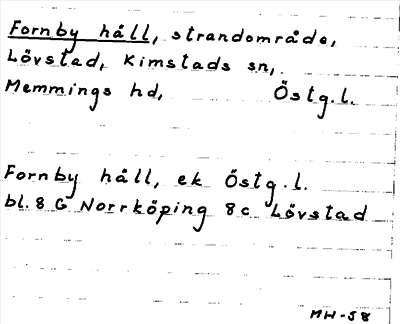 Fornby håll, strandområde,
Lövstad, Kimstads sn,
Memmings hd, Östg.l.
Fornby håll, ek Östg.l.
bl. 8 G Norrköping 8c Lövstad
MH-58